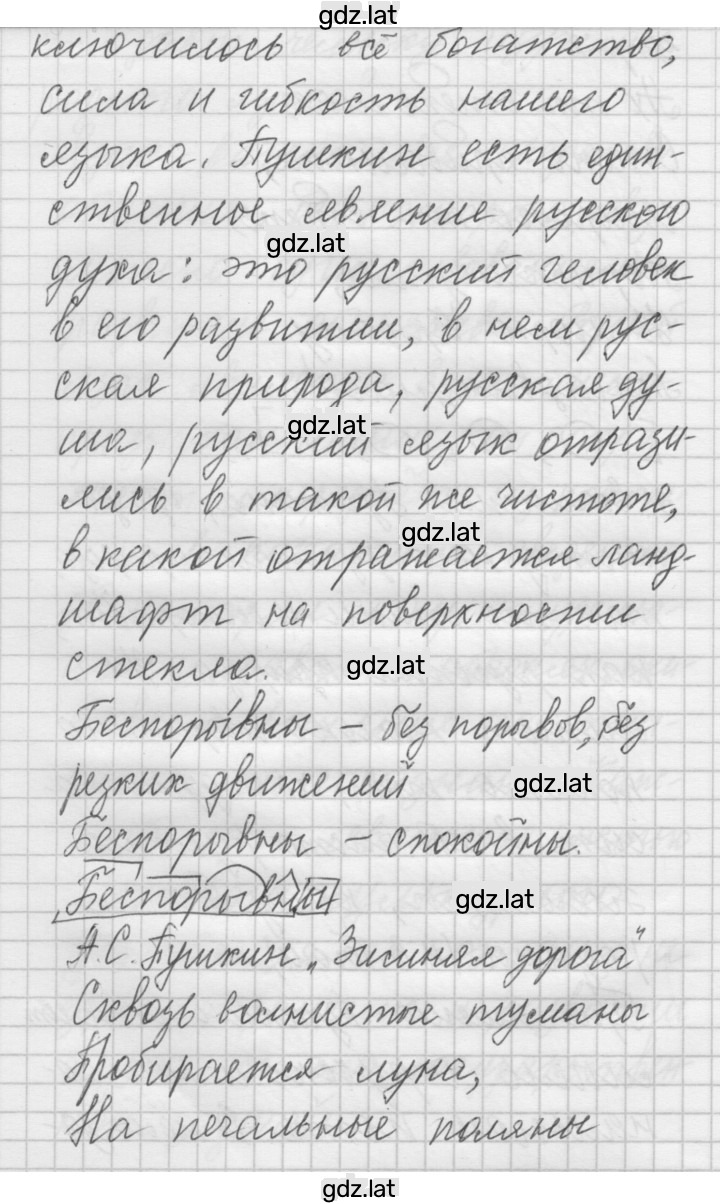 gdz.lat
ключилось всё богатство,
сила и гибкость нашего
языка. Пушкин есть един-
ственное явление русского
gdz.lat
духа: это русский человек
в его развитии, в нем рус-
ская природа, русская ду-
gdz.lat
ша, русский язык отрази-
лись в такой же чистоте,
gdz.lat
в какой отражается ланд-
шафт на поверхности
стекла.
gdz.lat
Беспоры́вны – без порывов, без
резких движений
gdz.lat
Беспорывны – спокойны.
Беспорывны
gdz.lat
А.С. Пушкин „Зимняя дорога"
Сквозь волнистые туманы
Пробирается луна,
На печальные поляны
gdz.lat